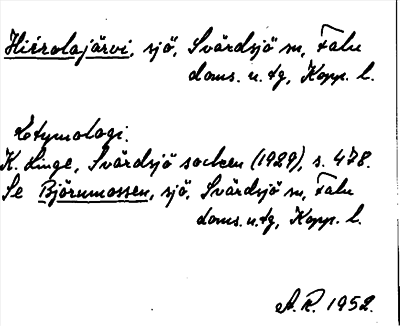 Hiirolajärvi, sjö, Svärdsjö sn, Falu
doms. n. tg, Kopp. l.
Etymologi:
K. Linge, Svärdsjö socken (1929), s. 478.
Se Björnmossen, sjö, Svärdsjö sn, Falu
doms. n. tg, Kopp. l.
A. R. 1952.